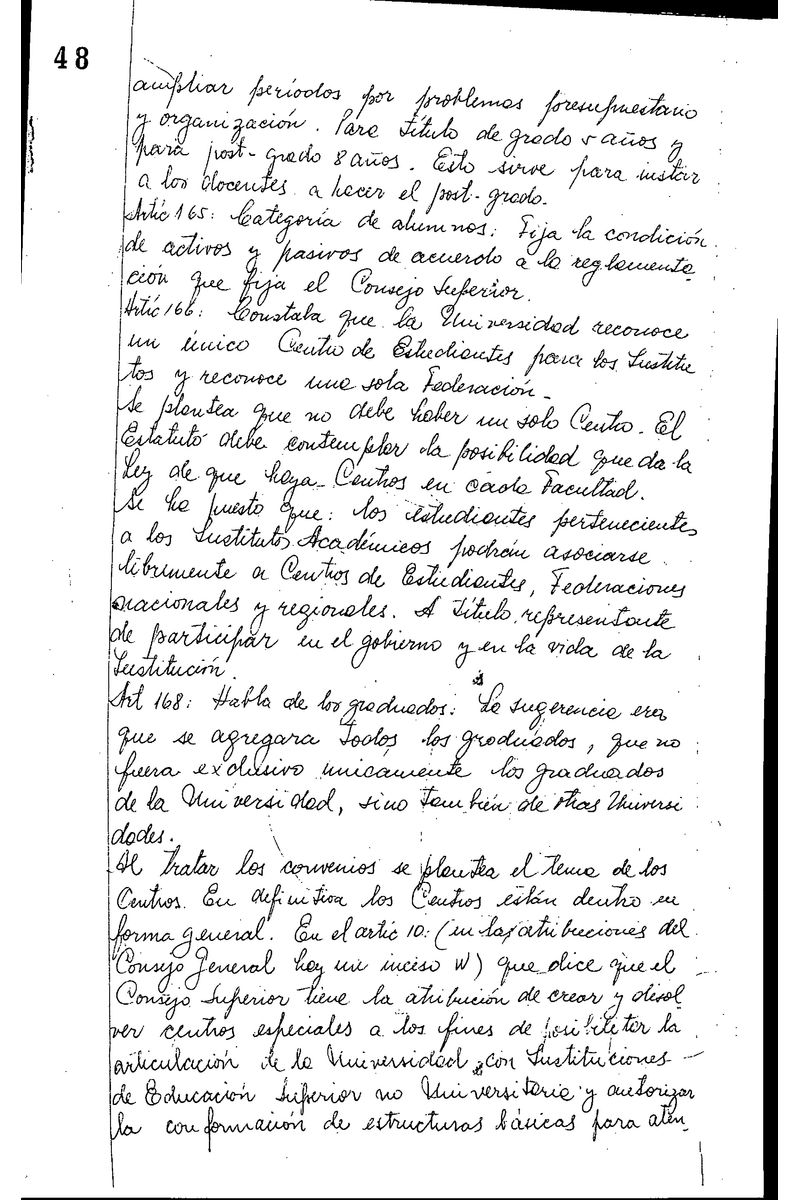 48
ampliar períodos por problemas presupuestario
y organización. Para título de grado 5 años y
para post-grado 8 años. Esto sirve para instar
a los docentes a hacer el post-grado.
Artíc 165: Categoría de alumnos: Fija la condición
de activos y pasivos de acuerdo a la reglamenta
ción que fija el Consejo Superior.
Artíc 166: Constaba que la Universidad reconoce
un único Centro de Estudiantes para los Institu
tos y reconoce una sola Federación-
Se plantea que no debe haber un solo Centro. El
Estatuto debe contemplar la posibilidad que da la
Ley de que haya Centros en cada Facultad.
Se ha puesto que: los estudiantes pertenecientes
a los Institutos Académicos podrán asociarse
libremente a Centros de Estudiantes, Federaciones
nacionales y regionales. A título representante
de participar en el gobierno y en la vida de la
Institución.
Art 168: Habla de los graduados: La sugerencia era
que se agregara todos los graduados, que no
fuera exclusivo unicamente los graduados
de la Universidad, sino también de otras Universi
dades.
Al tratar los convenios se plantea el tema de los
Centros. En definitiva los Centros están dentro en
forma general. En el artic 10: (en las atribuciones del
Consejo General hay un inciso W) que dice que el
Consejo Superior tiene la atribución de crear y disol
ver centros especiales a los fines de posibilitar la
articulación de la Universidad con Instituciones
de Educación Superior no Universitaria y autorizar
la conformación de estructuras básicas para aten